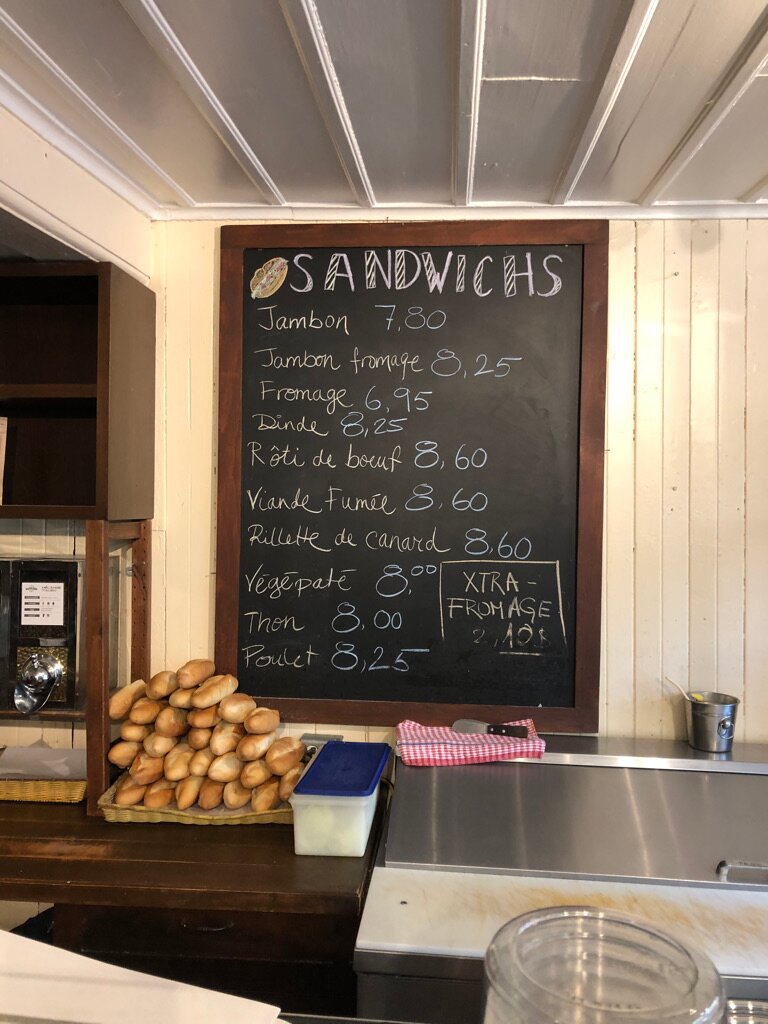 SANDWICHS
Jambon 7,80
Jambon fromage 8,25
Fromage 6,95
Dinde 8,25
Rôti de boeuf 8,60
Viande Fumée 8,60
Rillette de canard 8,60
Végépaté 8,00
Thon 8,00
Poulet 8,25
XTRA-
FROMAGE
2,10$